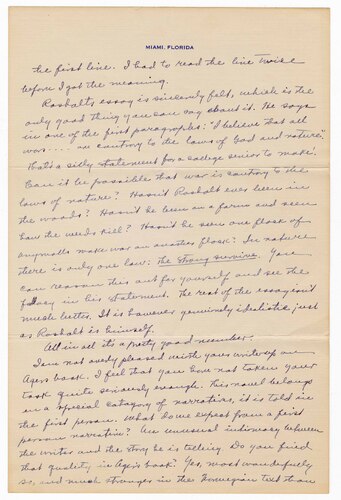 MIAMI, FLORIDA
the first line. I had to read the line twice
before I got the meaning.
Roshalt's essay is sincerely felt, which is the
only good thing you can say about it. He says
in one of the first paragraphs: "I believe that all
wars .... are contrary to the laws of God and nature."
That's a silly statement for a college senior to make.
Can it be possible that war is contrary to the
laws of nature? Hasn't Roshalt ever been in
the woods? Hasn't he been on a farm and seen
how the weeds kill? Hasn't he seen one flock of
animals make war on another flock? In nature
there is only one law: the strong survive. You
can reason this out for yourself and see the
fallacy in his statement. The rest of the essay isn't
much better. It is however genuinely idealistic just
as Roshalt is himself.
All in all it's a pretty good number.
I am not overly pleased with your writeup on
Ager's book. I feel that you have not taken your
task quite seriously enough. This novel belongs
in a special category of narratives, it is told in
the first person. What do we expect from a first
person narrative? An unusual intimacy between
the writer and the story he is telling. Do you find
that quality in Ager's book? Yes, most wonderfully
so, and much stronger in the Norwegian text than